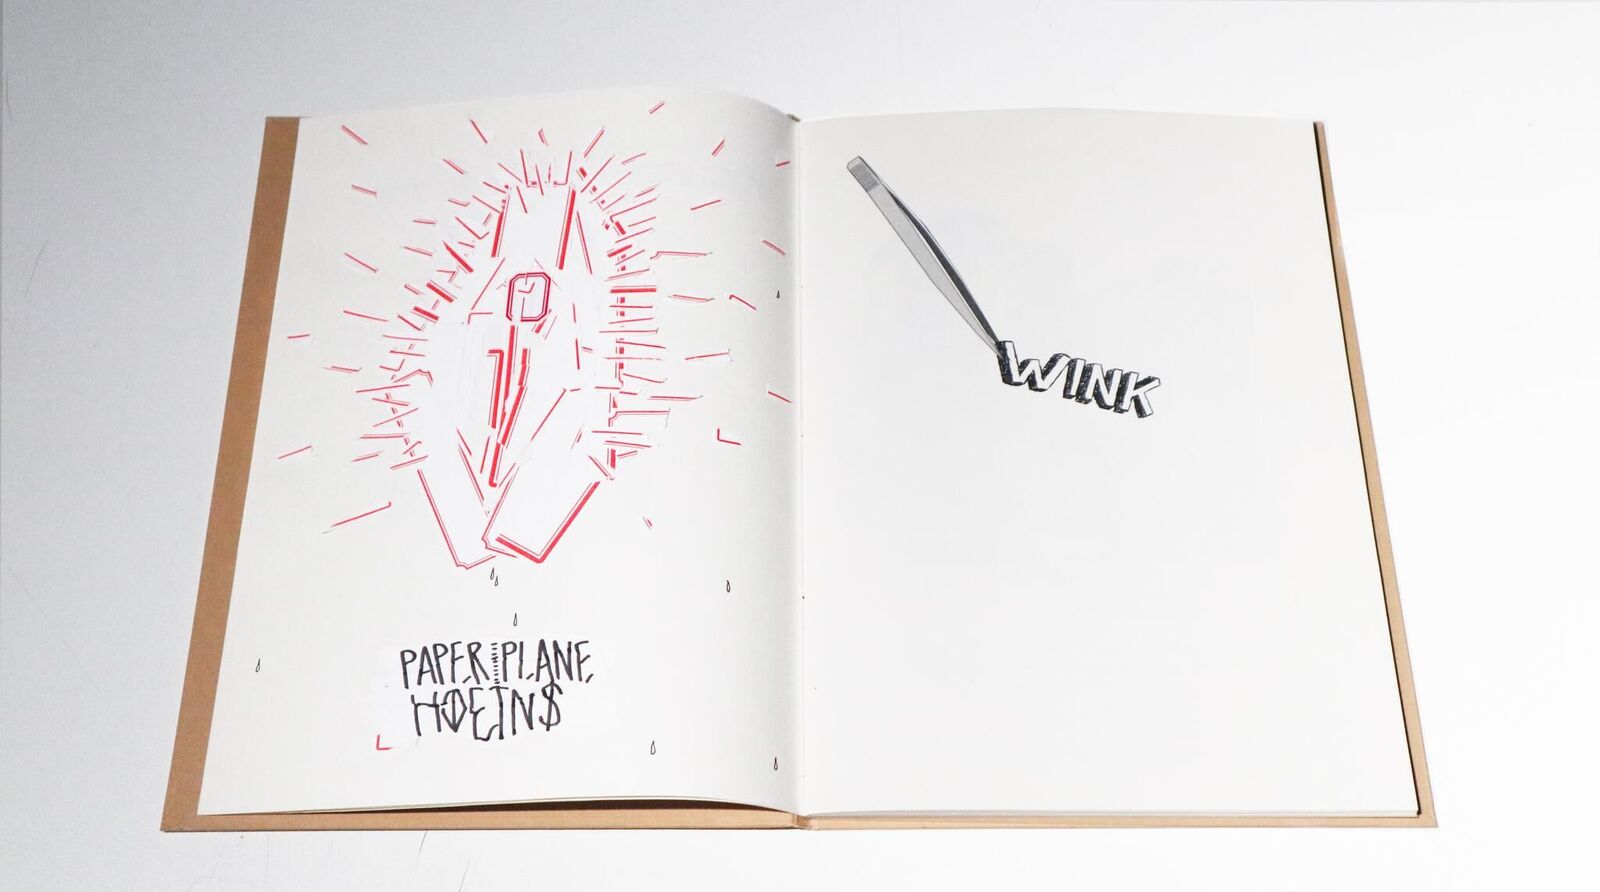 PAPER PLANE
HOEIN$
WINK